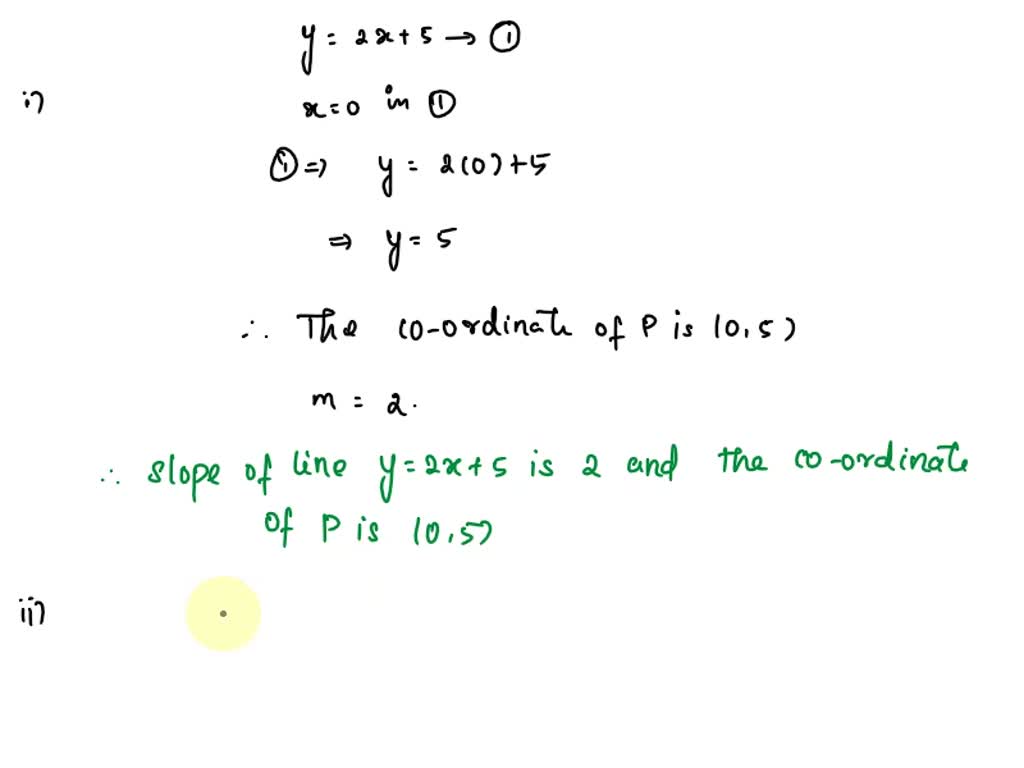 y = 2x + 5 → ①
i) x = 0 in ①
① ⇒ y = 2(0) + 5
⇒ y = 5
∴ The co-ordinate of P is (0,5)
m = 2.
∴ slope of line y = 2x + 5 is 2 and the co-ordinate
of P is (0,5)
ii)